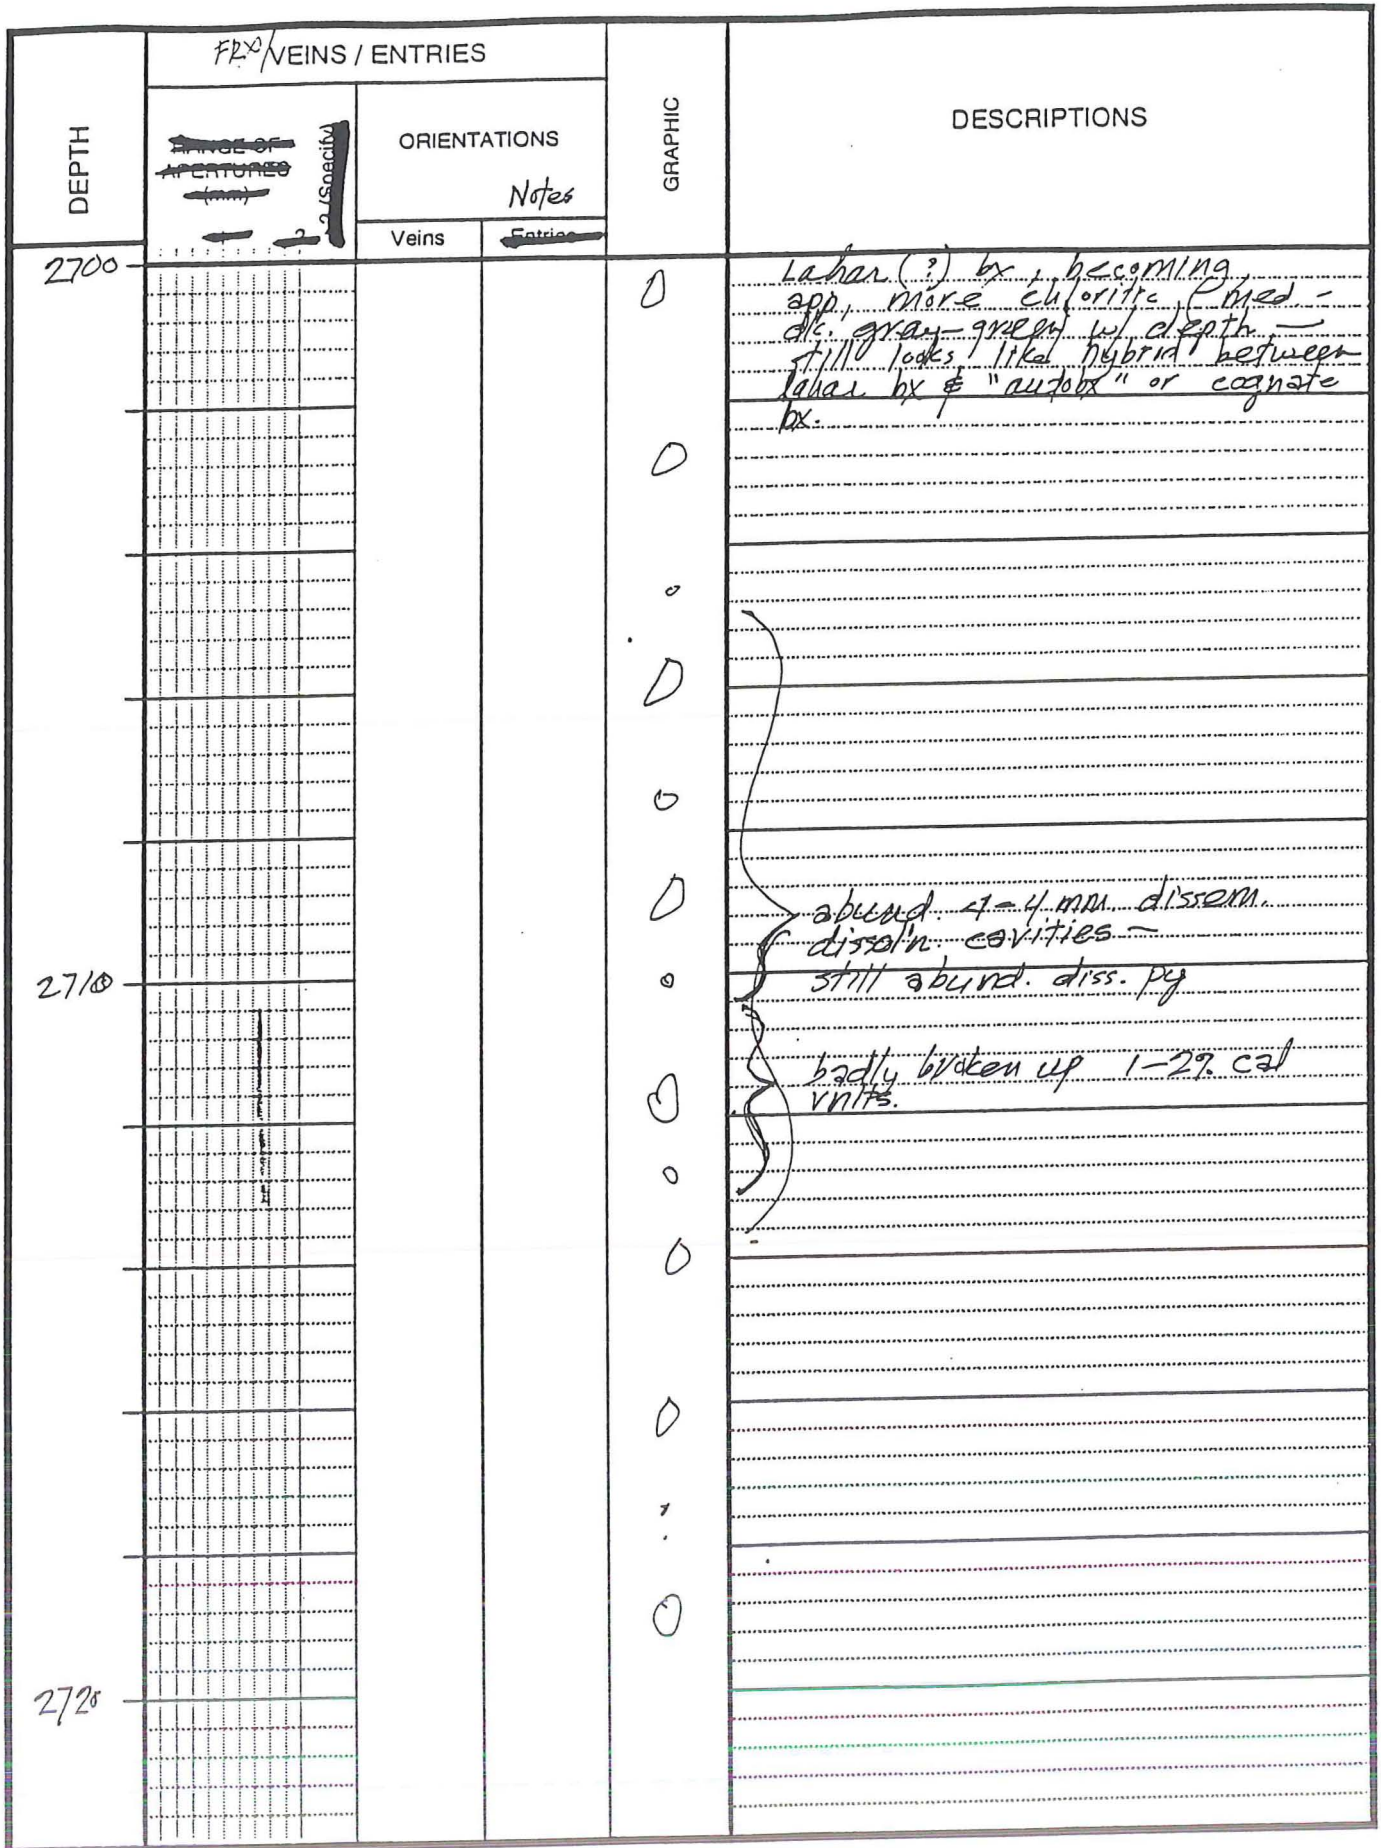 FRX/VEINS / ENTRIES
DEPTH
RANGE OF
APERTURES
(mm)
? (Specify)
ORIENTATIONS
Notes
Veins
Entries
GRAPHIC
DESCRIPTIONS
2700
Lahar (?) bx, becoming
app, more chloritic (med-
dk. gray-green) w/ depth —
still looks like hybrid between
lahar bx & "autobx" or cognate
bx.
abund. <1-4 mm. dissem.
dissol'n cavities —
2710
still abund. diss. py
badly broken up 1-2% cal
vnlts.
2720